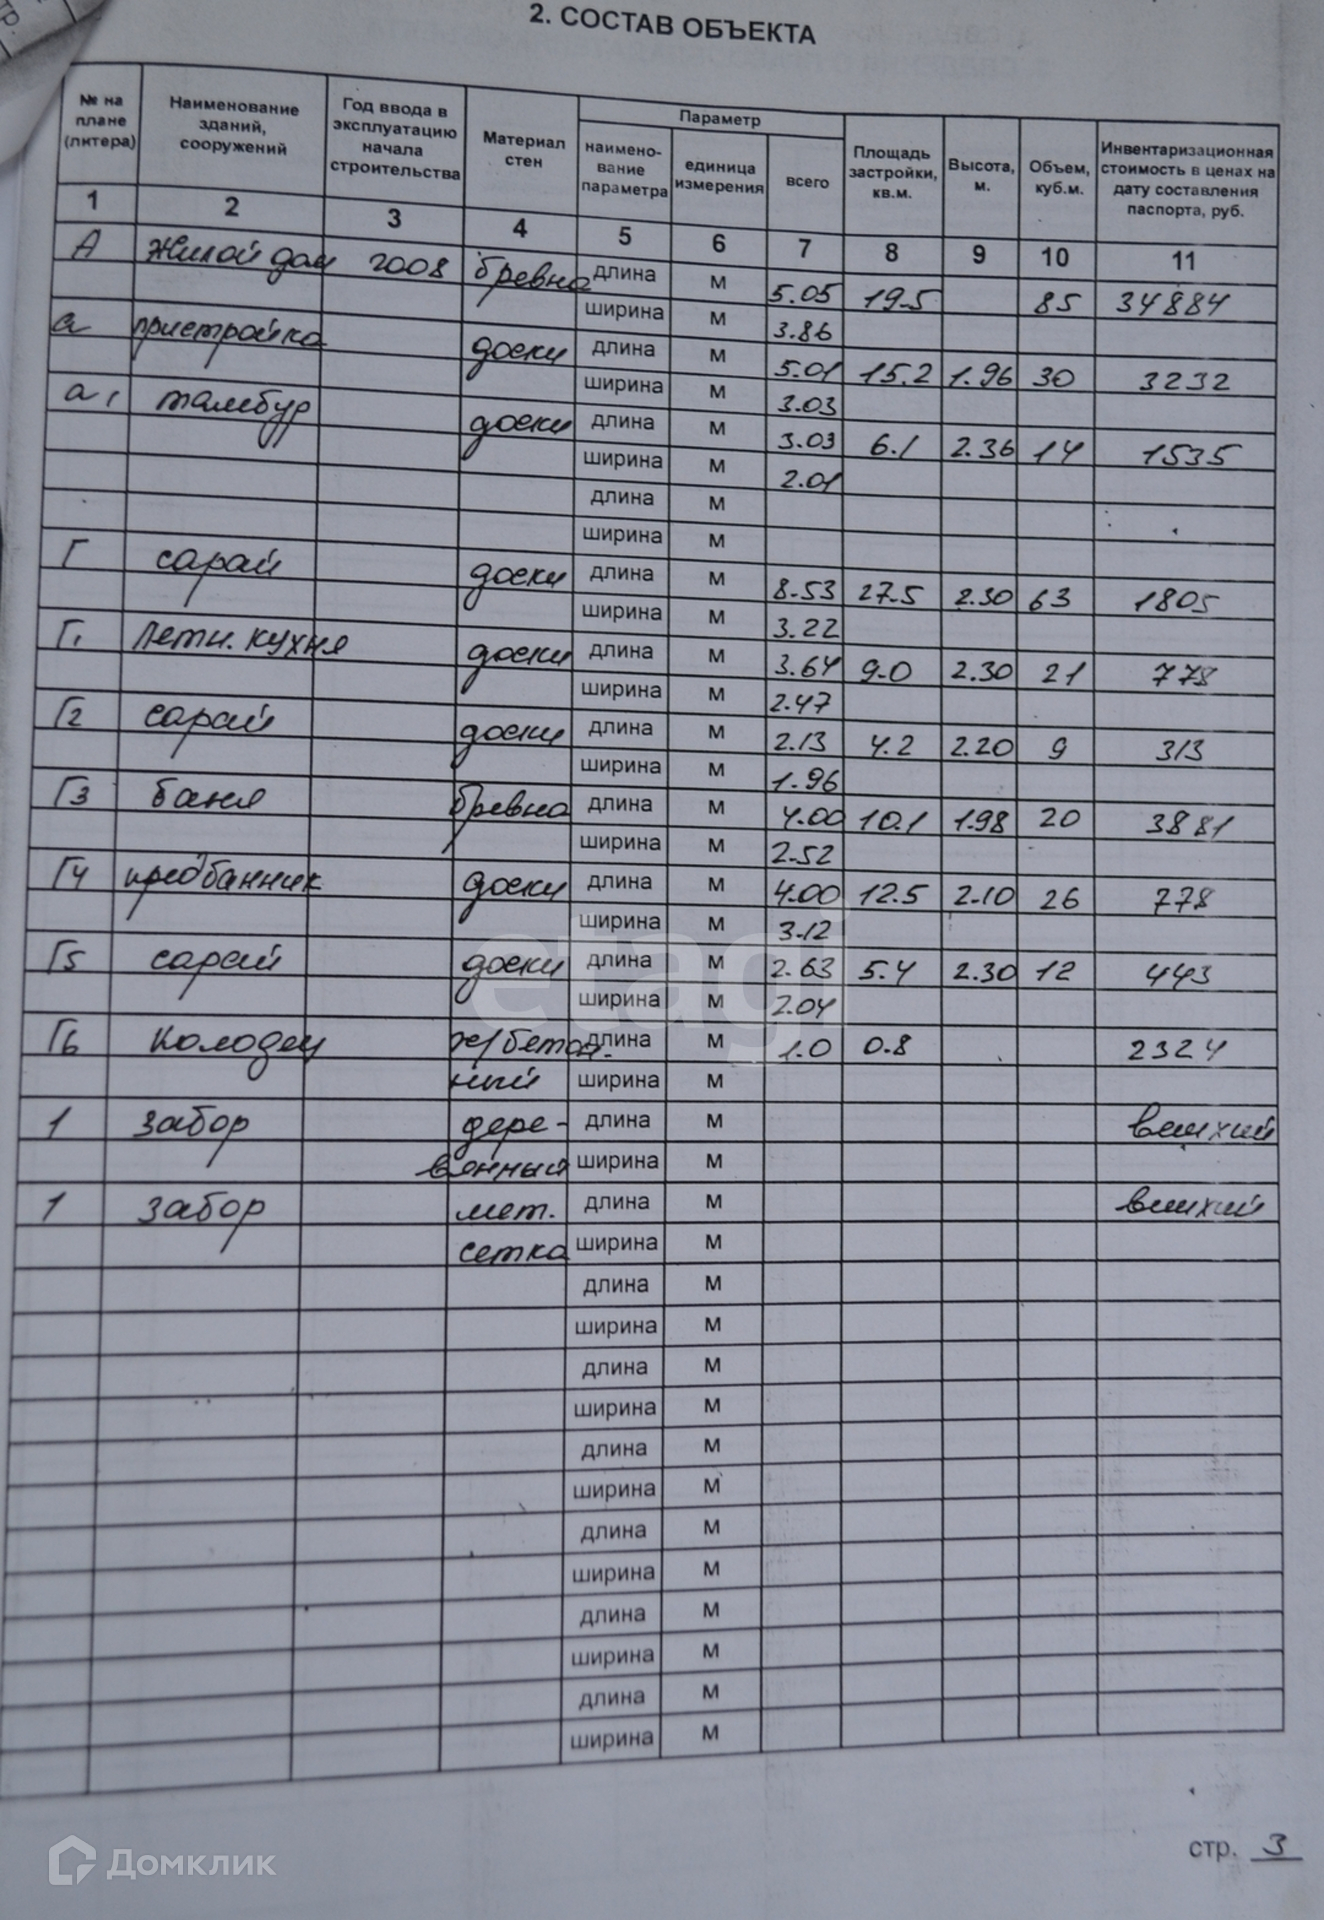 2. СОСТАВ ОБЪЕКТА
№ на плане (литера) Наименование зданий, сооружений Год ввода в эксплуатацию начала строительства Материал стен Параметр Площадь застройки, кв.м. Высота, м. Объем, куб.м. Инвентаризационная стоимость в ценах на дату составления паспорта, руб.
наимено-вание параметра единица измерения всего
1 2 3 4 5 6 7 8 9 10 11
А жилой дом 2008 бревно длина м 5.05 19.5 85 34884
ширина м 3.86
а пристройка доски длина м 5.01 15.2 1.96 30 3232
ширина м 3.03
а1 тамбур доски длина м 3.03 6.1 2.36 14 1535
ширина м 2.01
длина м
ширина м
Г сарай доски длина м 8.53 27.5 2.30 63 1805
ширина м 3.22
Г1 Летн. кухня доски длина м 3.64 9.0 2.30 21 778
ширина м 2.47
Г2 сарай доски длина м 2.13 4.2 2.20 9 313
ширина м 1.96
Г3 баня бревно длина м 4.00 10.1 1.98 20 3881
ширина м 2.52
Г4 предбанник доски длина м 4.00 12.5 2.10 26 778
ширина м 3.12
Г5 сарай доски длина м 2.63 5.4 2.30 12 443
ширина м 2.04
Г6 колодец ж/бетон- длина м 1.0 0.8 2324
ный ширина м
1 забор дере- длина м ветхий
вянный ширина м
1 забор мет. длина м ветхий
сетка ширина м
длина м
ширина м
длина м
ширина м
длина м
ширина м
длина м
ширина м
длина м
ширина м
длина м
ширина м
etagi
стр. 3
Домклик